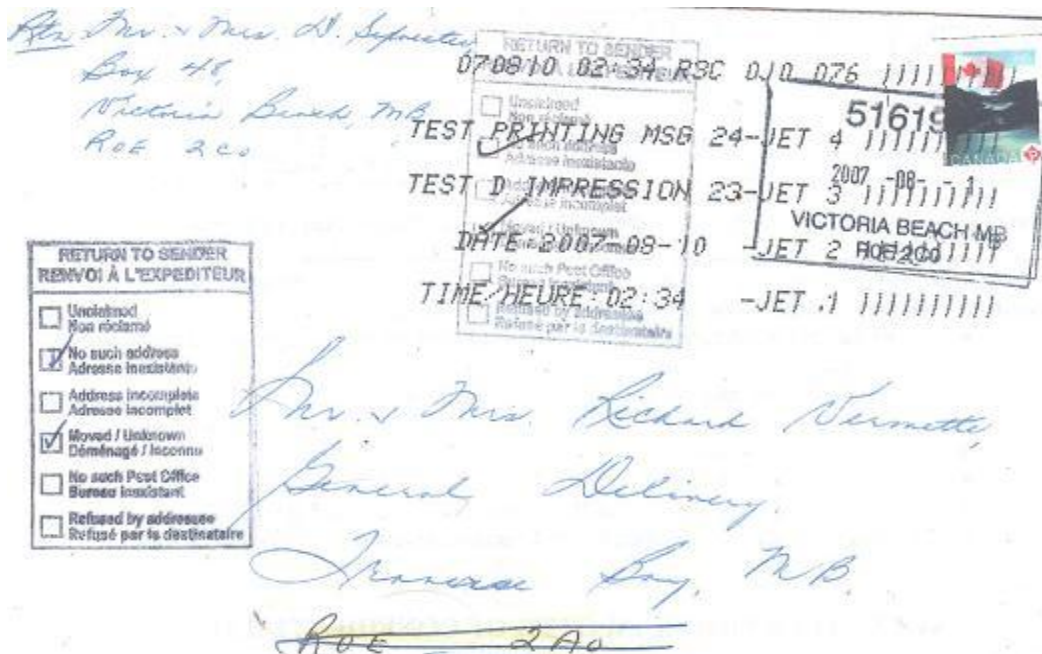 Rtn Mr. & Mrs. D. Sylvester
Box 48,
Victoria Beach, MB
R0E 2C0
RETURN TO SENDER
RENVOI À L'EXPEDITEUR
Unclaimed
Non réclamé
No such address
Adresse inexistante
Address incomplete
Adresse incomplet
Moved / Unknown
No such Post Office
Bureau inexistant
Refused by addressee
Refusé par le destinataire
070810 02:34 RSC 0J0 076 ||||||||||
TEST PRINTING MSG 24-JET 4 ||||||||||
TEST D IMPRESSION 23-JET 3 ||||||||||
DATE 2007-08-10 -JET 2 ||||||||||
TIME/HEURE:02:34 -JET .1 ||||||||||
51619
2007 -08- - 1
VICTORIA BEACH MB
R0E 2C0
CANADA
P
RETURN TO SENDER
RENVOI À L'EXPEDITEUR
Unclaimed
Non réclamé
No such address
Adresse inexistante
Address incomplete
Adresse incomplet
Moved / Unknown
Déménagé / Inconnu
No such Post Office
Bureau inexistant
Refused by addressee
Refusé par le destinataire
Mr. & Mrs. Richard Vermette,
General Delivery,
Traverse Bay, MB.
R0E 2A0